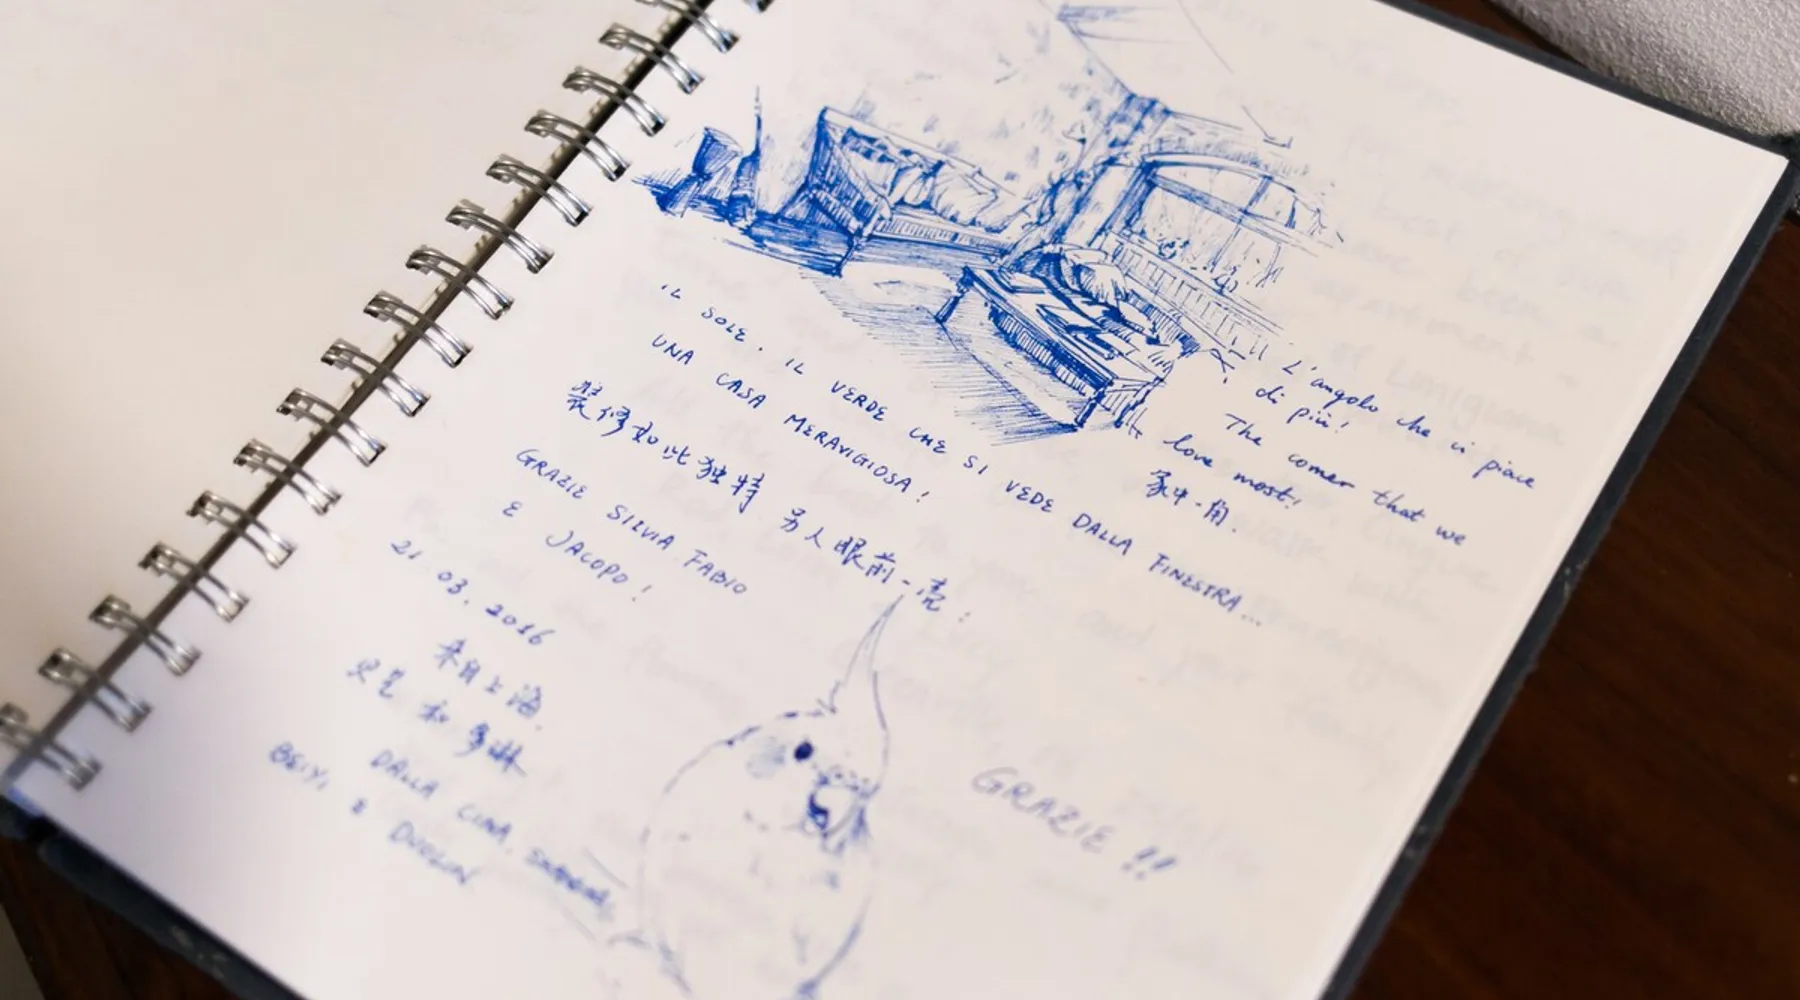 IL SOLE. IL VERDE CHE SI VEDE DALLA FINESTRA...
UNA CASA MERAVIGIOSA!
装修如此独特 另人眼前一亮!
GRAZIE SILVIA FABIO
E JACOPO!
21.03.2016
来自上海.
贝艺 和 多琳
DALLA CINA, SHANGHAI,
BEIYI E
L'angolo che ci piace
di più!
The corner that we
love most!
家中一角.
GRAZIE !!